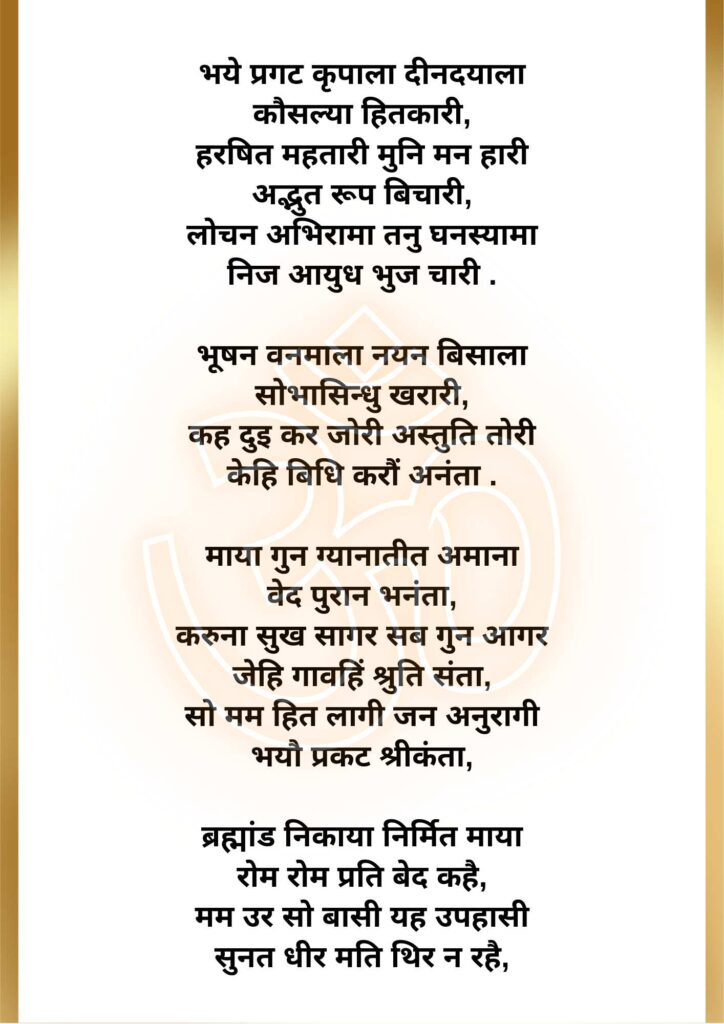 भये प्रगट कृपाला दीनदयाला
कौसल्या हितकारी,
हरषित महतारी मुनि मन हारी
अद्भुत रूप बिचारी,
लोचन अभिरामा तनु घनस्यामा
निज आयुध भुज चारी .
भूषन वनमाला नयन बिसाला
सोभासिन्धु खरारी,
कह दुइ कर जोरी अस्तुति तोरी
केहि बिधि करौं अनंता .
माया गुन ग्यानातीत अमाना
वेद पुरान भनंता,
करुना सुख सागर सब गुन आगर
जेहि गावहिं श्रुति संता,
सो मम हित लागी जन अनुरागी
भयौ प्रकट श्रीकंता,
ब्रह्मांड निकाया निर्मित माया
रोम रोम प्रति बेद कहै,
मम उर सो बासी यह उपहासी
सुनत धीर मति थिर न रहै,